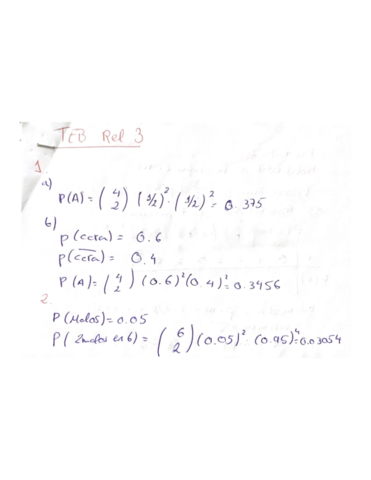 TEB Rel 3
1.
a)
P(A) = (4 2) (1/2)² · (1/2)² = 0.375
b)
p(cara) = 0.6
p(c̅a̅r̅a̅) = 0.4
P(A) = (4 2) (0.6)² (0.4)² = 0.3456
2.
P(Malos) = 0.05
P(2malos en 6) = (6 2) (0.05)² · (0.95)⁴ = 0.03054